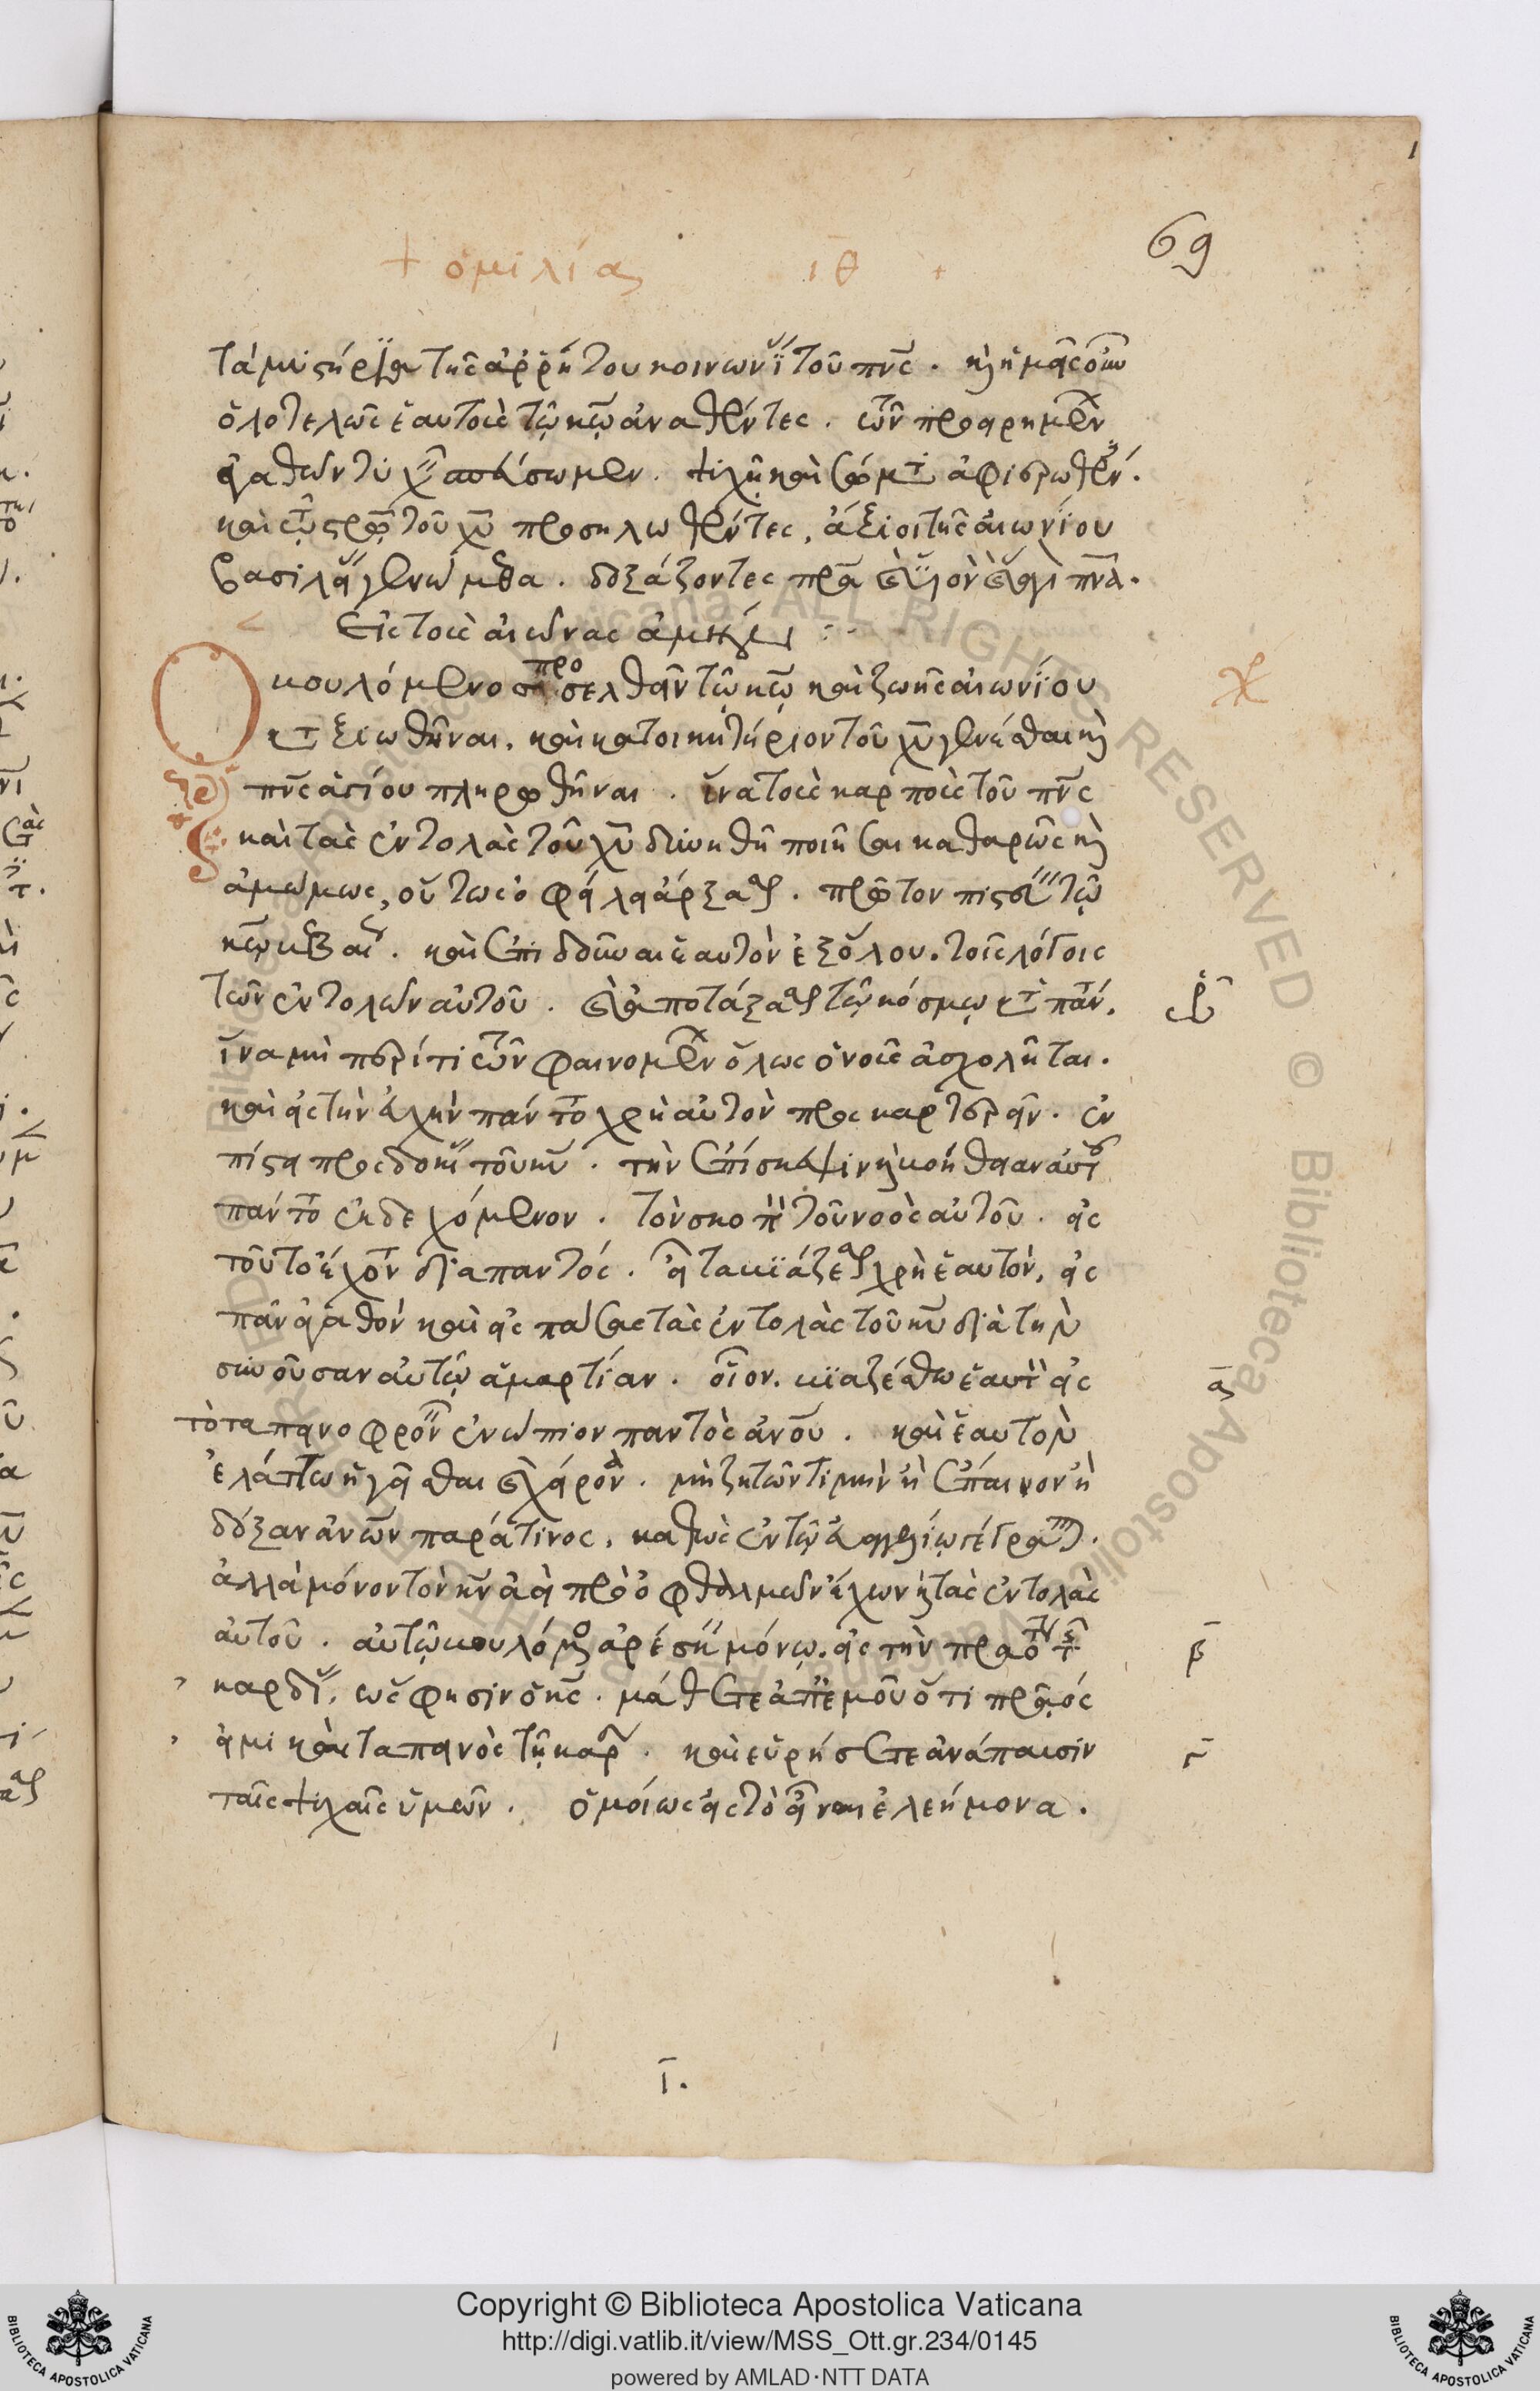 69
+ ὁμιλία ιθ +
τὰ μυστήρια τῆς ἀρρήτου κοινωνί τοῦ πνς. καὶ ἡμᾶς οὖν
ὁλοτελῶς ἑαυτοὺς τῷ κω ἀναθέντες. τῶν προειρημέν
ἀγαθῶν ἀπολαύσωμεν. ψυχῇ καὶ σώματι ἀφιερωθέν.
καὶ τῷ στρω τοῦ χυ προσηλωθέντες, ἄξιοι τῆς αἰωνίου
βασιλεί γενώμεθα. δοξάζοντες πρα καὶ υἱὸν καὶ ἅγι πνα.
Εἰς τοὺς αἰῶνας ἀμήν :
Ὁ βουλόμενος προσελθεῖν τῷ κω καὶ ζωῆς αἰωνίου
καταξιωθῆναι. καὶ κατοικητήριον τοῦ χυ γενέσθαι καὶ
πνς ἁγίου πληρωθῆναι. ἵνα τοὺς καρποὺς τοῦ πνς
καὶ τὰς ἐντολὰς τοῦ χυ δυνηθῆ ποιῆσαι καθαρῶς καὶ
ἀμώμως, οὕτως ὀφείλει ἄρξασθαι. πρῶτον πιστεύειν τῷ
κω βεβαίως. καὶ ἐπιδοῦναι ἑαυτὸν ἐξ ὅλου. τοῖς λόγοις
τῶν ἐντολῶν αὐτοῦ. καὶ ἀποτάξασθαι τῷ κόσμῳ κατὰ πάντ.
ἵνα μὴ περί τι τῶν φαινομέν ὅλως ὁ νοῦς ἀσχολῆται.
καὶ εἰς τὴν εὐχὴν πάντοτε χρὴ αὐτὸν προσκαρτερεῖν. ἐν
πίστει προσδοκί τοῦ κυ. τὴν ἐπίσκεψιν καὶ βοήθειαν αὐτοῦ
πάντοτε ἐκδεχόμενον. τὸν σκοπὸν τοῦ νοὸς αὐτοῦ. εἰς
τοῦτο ἔχοντ διαπαντός. εἶτα βιάζεσθαι χρὴ ἑαυτόν, εἰς
πᾶν ἀγαθόν καὶ εἰς πάσας τὰς ἐντολὰς τοῦ κυ διὰ τὴν
συνοῦσαν αὐτῷ ἁμαρτίαν. οἷον. βιαζέσθω ἑαυτὸν εἰς
τὸ ταπεινοφρον ἐνώπιον παντὸς ἀνου. καὶ ἑαυτὸν
ἐλάττω ἡγεῖσθαι καὶ χείρονα. μὴ ζητῶν τιμὴν ἢ ἔπαινον ἢ
δόξαν ἀνων παρά τινος, καθὼς ἐν τῷ εὐαγγελίῳ γέγραπται.
ἀλλὰ μόνον τὸν κν ἀεὶ πρὸ ὀφθαλμῶν ἔχων καὶ τὰς ἐντολὰς
αὐτοῦ. αὐτῷ βουλόμενος ἀρέσειν μόνῳ. εἰς τὴν πραότητα τῆς
καρδί, ὥς φησιν ὁ κς. μάθετε ἀπ ἐμοῦ ὅτι πρᾶός
εἰμι καὶ ταπεινὸς τῇ καρ. καὶ εὑρήσετε ἀνάπαυσιν
ταῖς ψυχαῖς ὑμῶν. ὁμοίως εἰς τὸ εἶναι ἐλεήμονα.
ὡρ
α
β
γ
ι.
Copyright © Biblioteca Apostolica Vaticana
http://digi.vatlib.it/view/MSS_Ott.gr.234/0145
powered by AMLAD·NTT DATA
BIBLIOTECA APOSTOLICA VATICANA
BIBLIOTECA APOSTOLICA VATICANA